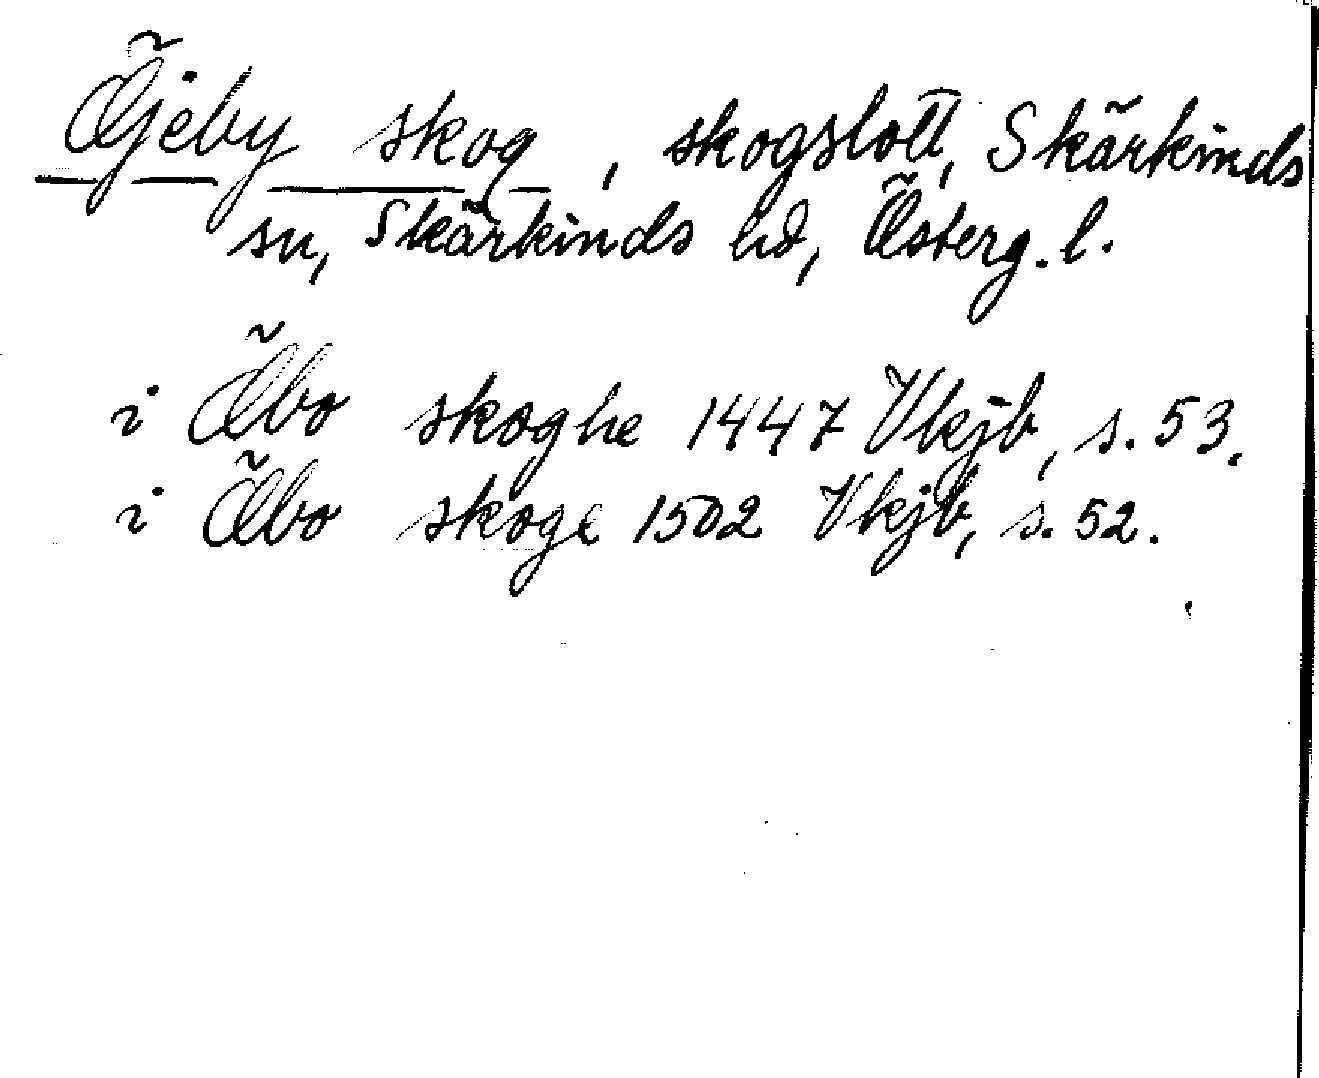 Öjeby skog, skogslott, Skärkinds
sn, Skärkinds hd, Österg. l.
i Öbo skoghe 1447 Vkjb, s. 53.
i Öbo skoge 1502 Vkjb, s. 52.